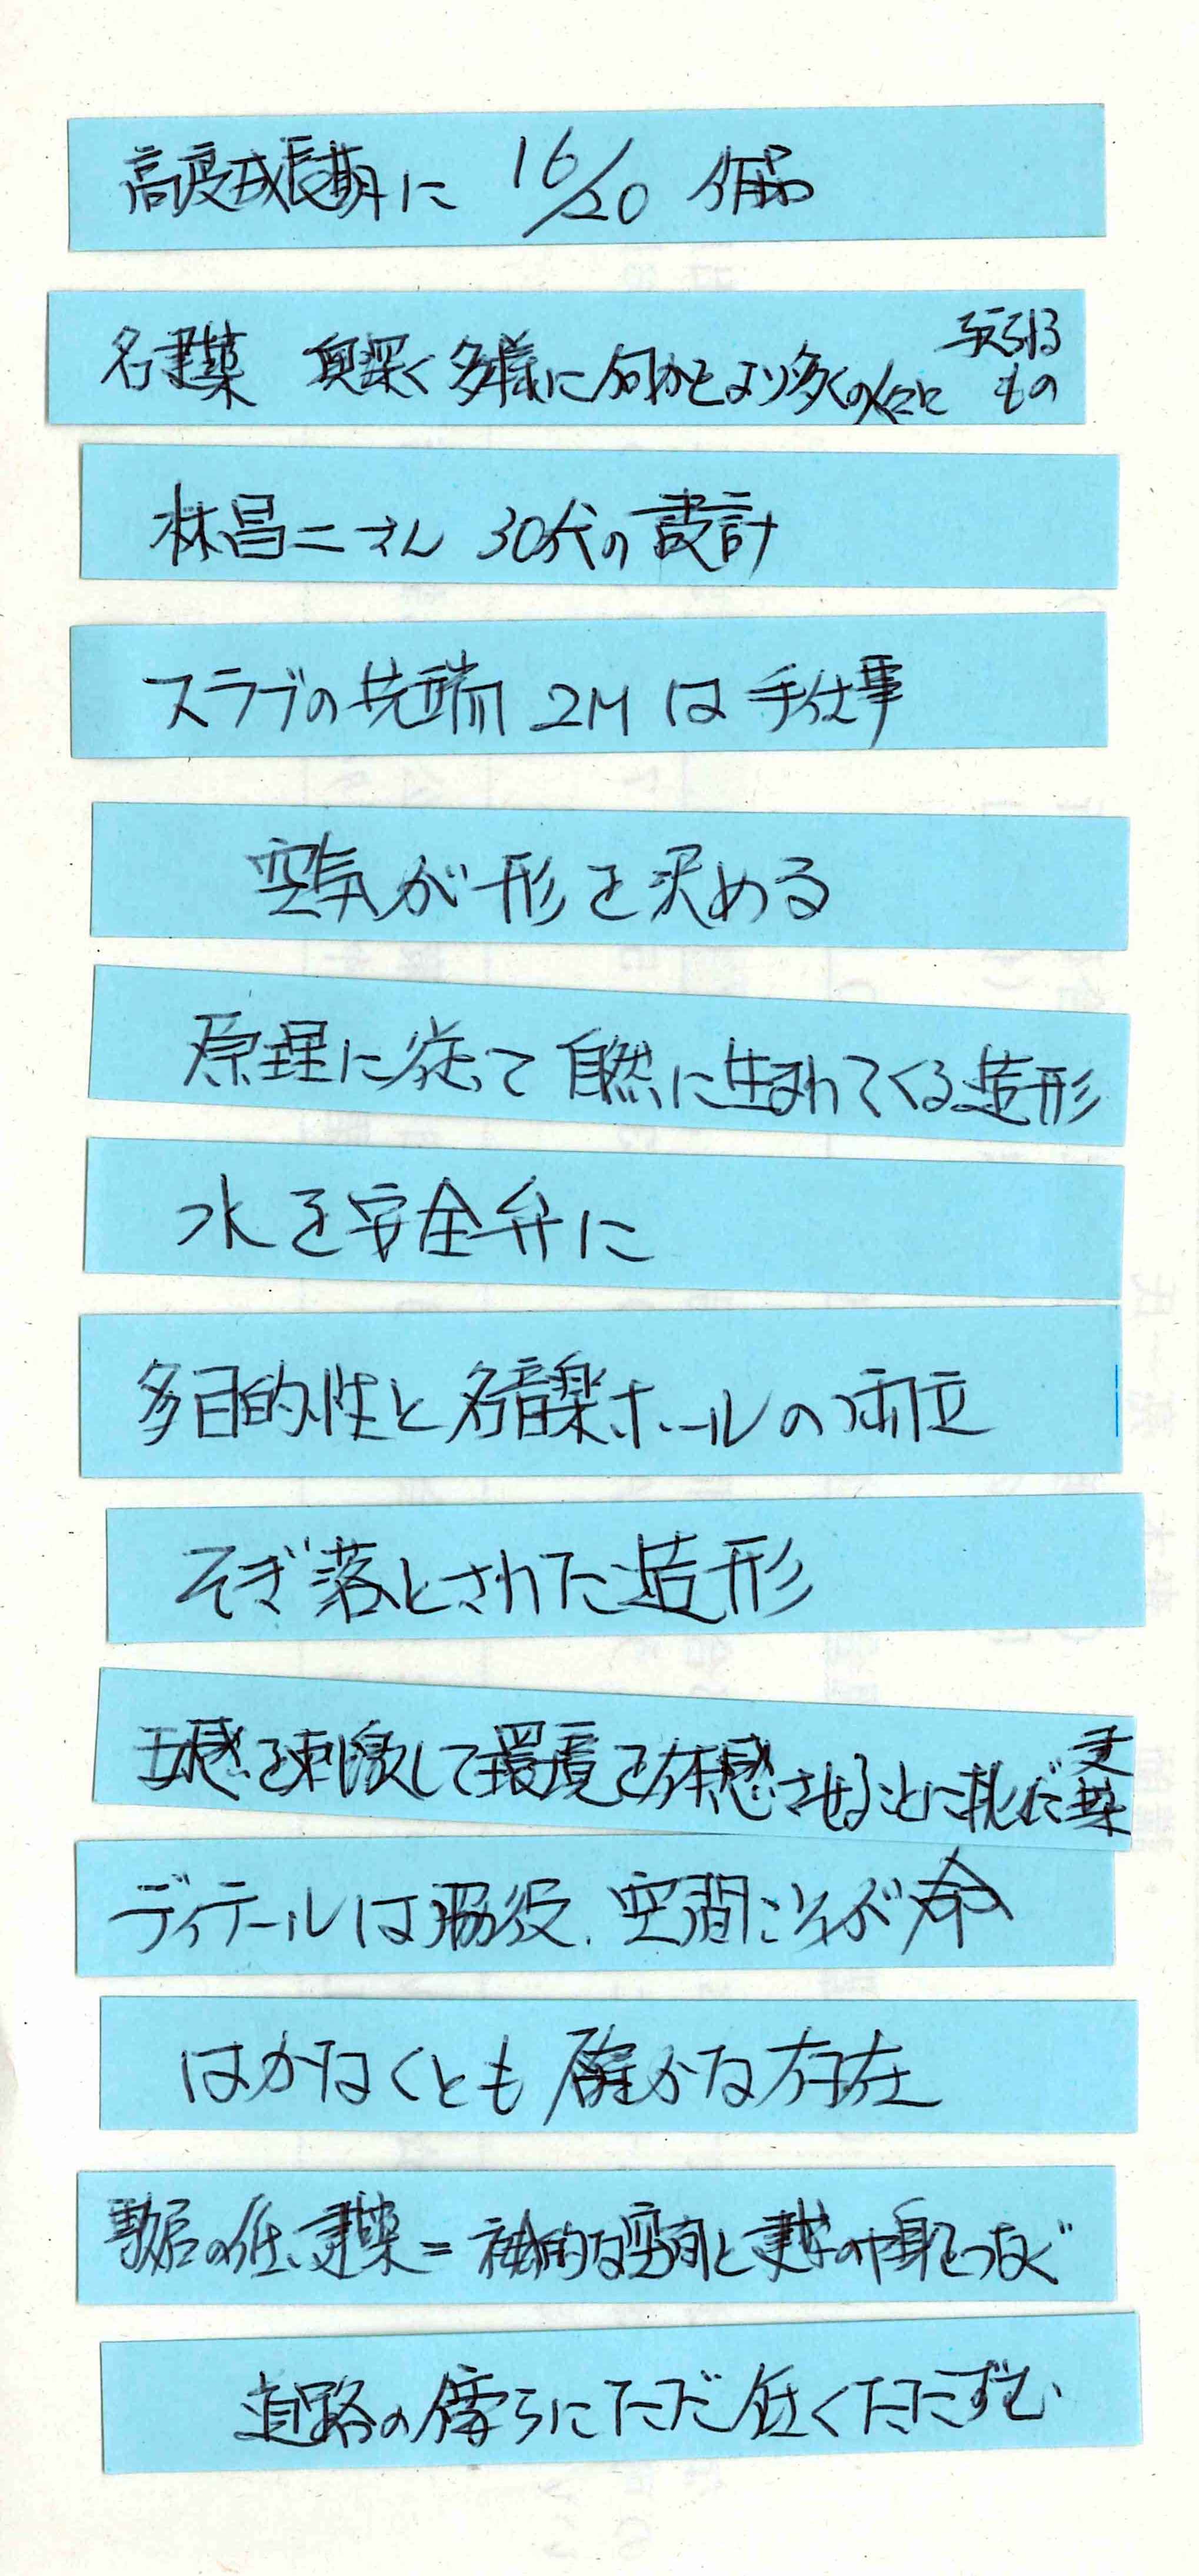 高度成長期に 16/20 個
名建築 奥深く多様に何かをより多くの人々に 与えうる
もの
林昌二さん 30代の設計
スラブの先端 2M は 手仕事
空気が形を決める
原理に従って自然に生まれてくる造形
水を安全弁に
多目的性と名音楽ホールの両立
そぎ落とされた造形
五感を刺激して環境を体感させることに挑んだ建築
ディテールは脇役、空間こそが命
はかなくとも確かな存在
の低い建築=的な空間と建築の中身をつなぐ
道路の傍らにただ低くたたずむ